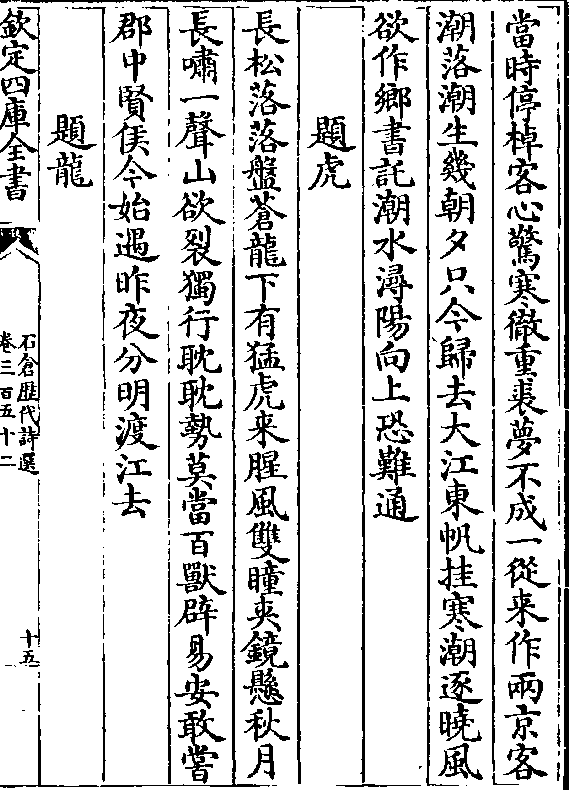 當時停棹客心驚寒徹重裘夢不成一從来作兩京客
潮落潮生幾朝夕只今歸去大江東帆挂寒潮逐曉風
欲作鄉書託潮水潯陽向上恐難通
題虎
長松落落盤蒼龍下有猛虎来腥風雙瞳夾鏡懸秋月
長嘯一聲山欲裂獨行耽耽勢莫當百獸辟易安敢嘗
郡中賢侯今始遇昨夜分明渡江去
題龍
欽定四庫全書
石倉歴代詩選
卷三百五十二
十五